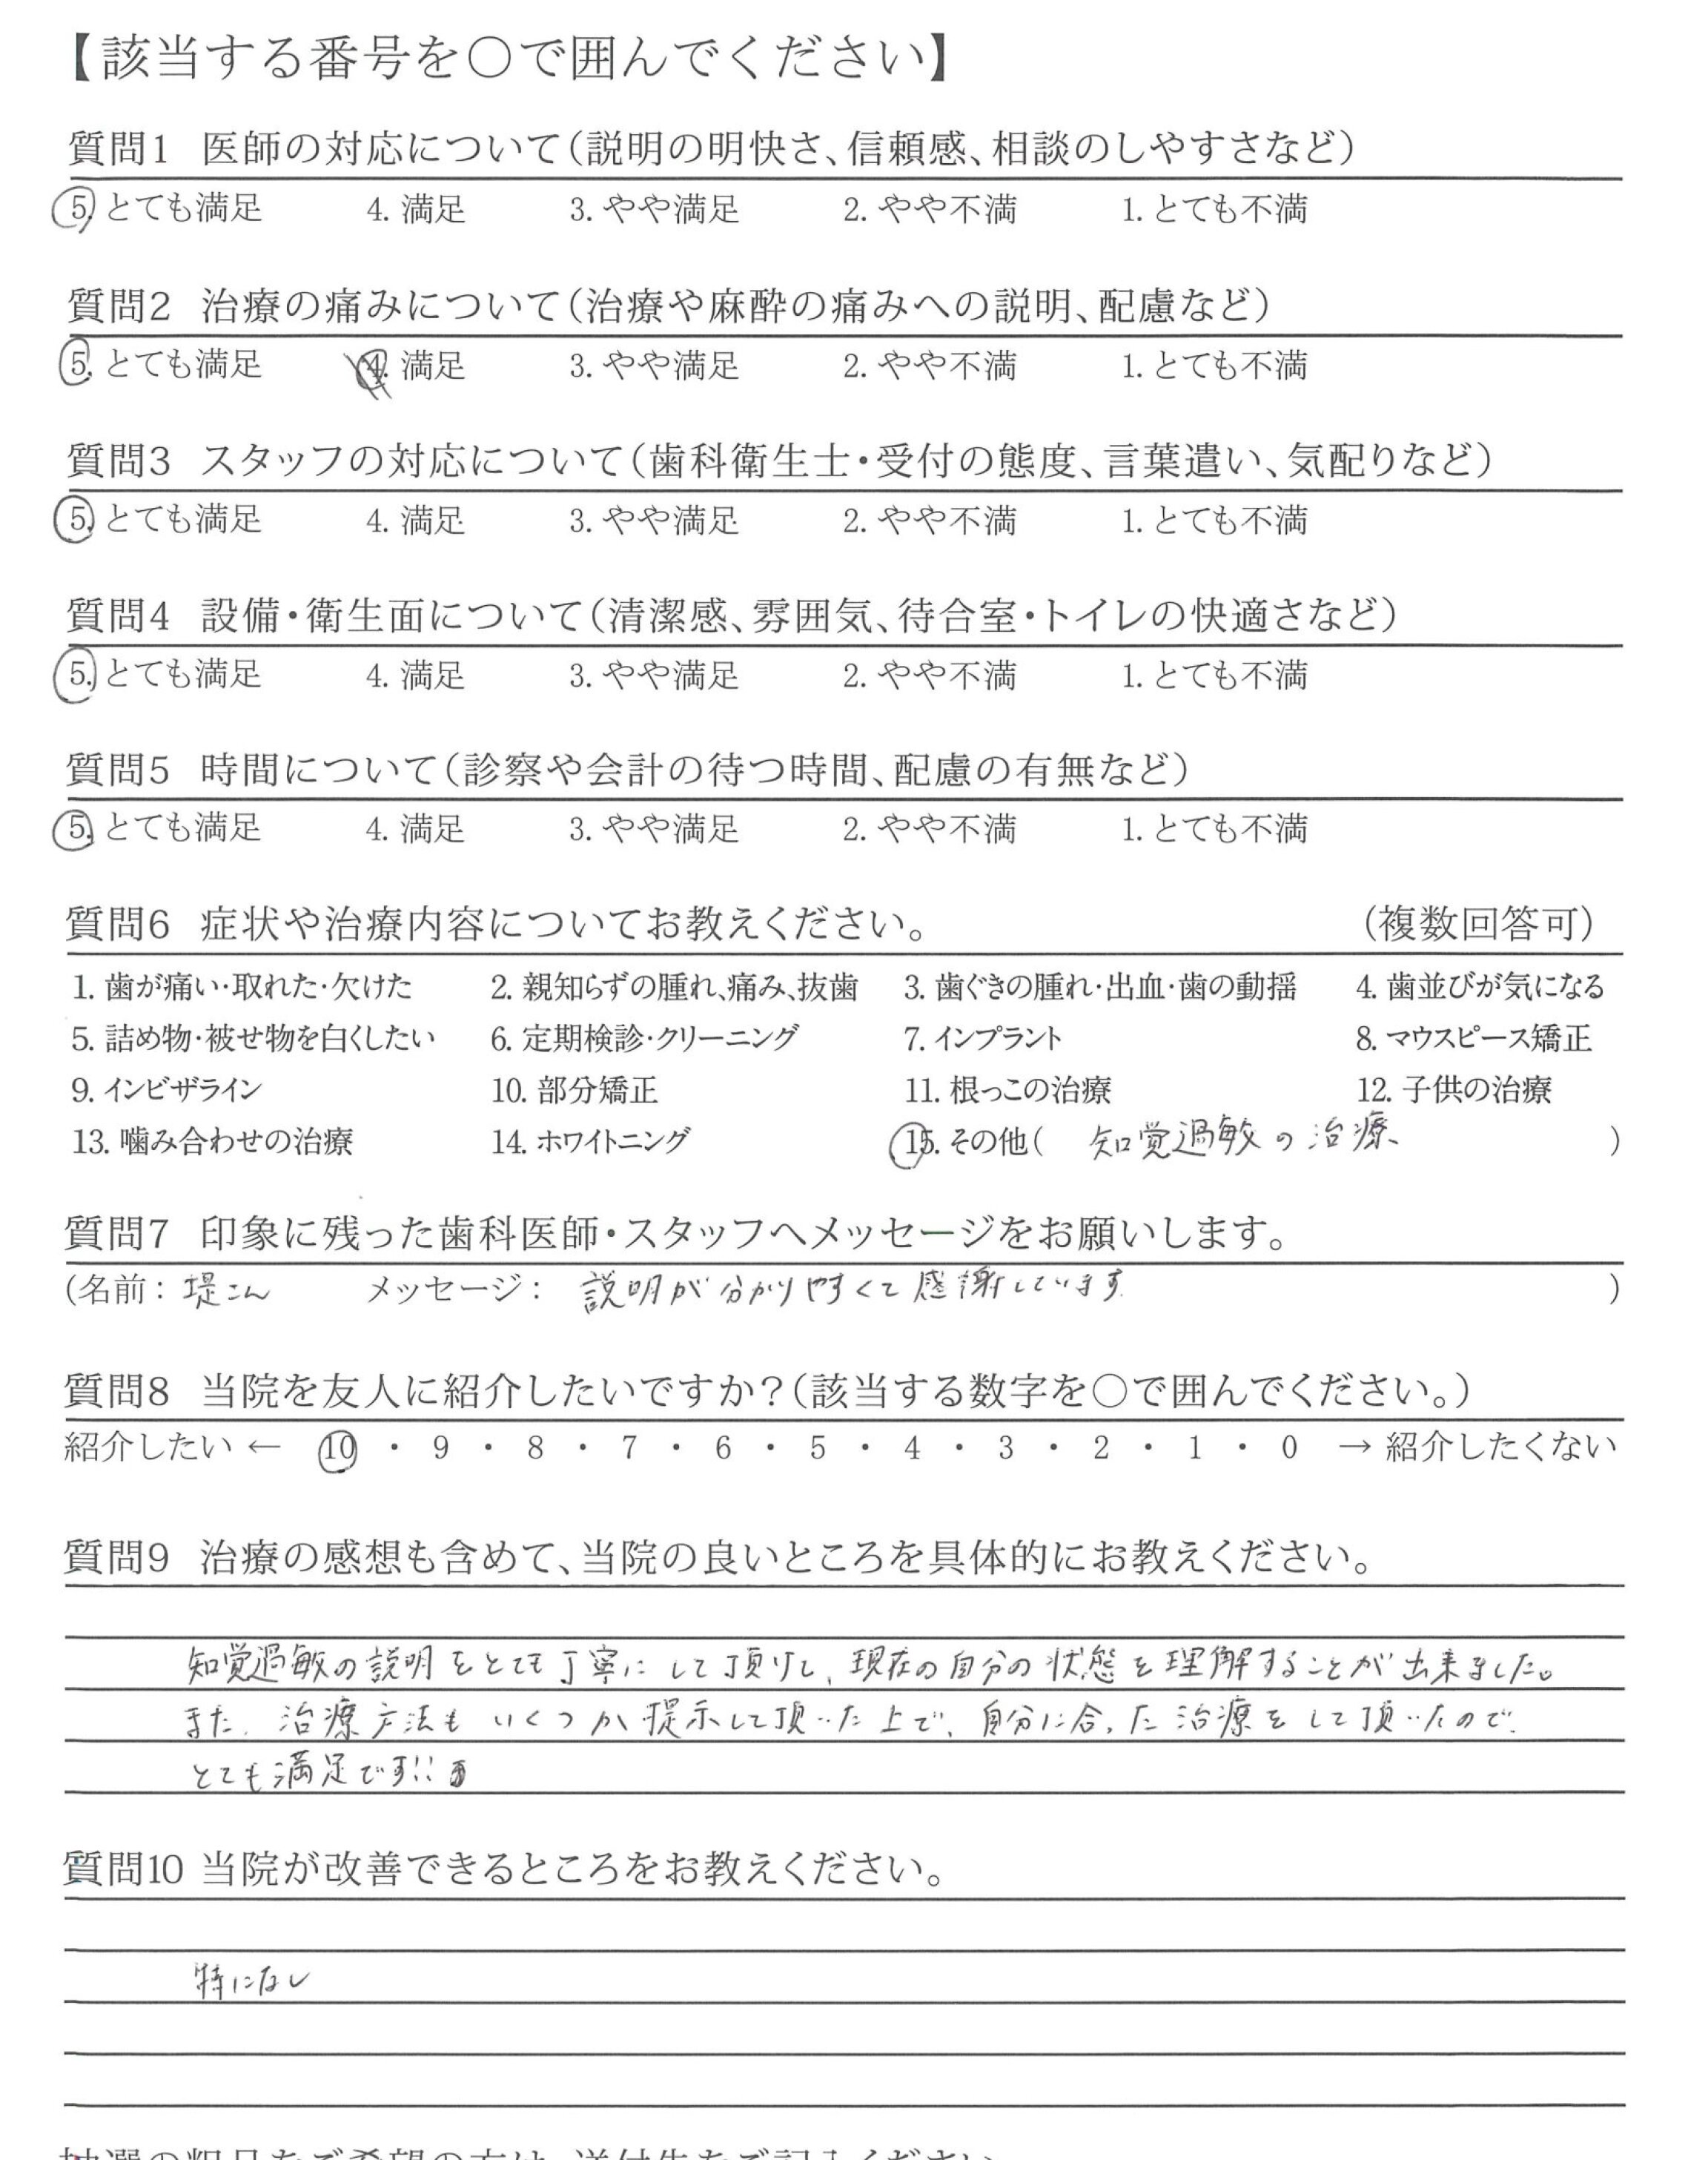 【該当する番号を〇で囲んでください】
質問1 医師の対応について(説明の明快さ、信頼感、相談のしやすさなど)
5. とても満足 4. 満足 3. やや満足 2. やや不満 1. とても不満
質問2 治療の痛みについて(治療や麻酔の痛みへの説明、配慮など)
5. とても満足 4. 満足 3. やや満足 2. やや不満 1. とても不満
質問3 スタッフの対応について(歯科衛生士・受付の態度、言葉遣い、気配りなど)
5. とても満足 4. 満足 3. やや満足 2. やや不満 1. とても不満
質問4 設備・衛生面について(清潔感、雰囲気、待合室・トイレの快適さなど)
5. とても満足 4. 満足 3. やや満足 2. やや不満 1. とても不満
質問5 時間について(診察や会計の待つ時間、配慮の有無など)
5. とても満足 4. 満足 3. やや満足 2. やや不満 1. とても不満
質問6 症状や治療内容についてお教えください。 (複数回答可)
1. 歯が痛い・取れた・欠けた 2. 親知らずの腫れ、痛み、抜歯 3. 歯ぐきの腫れ・出血・歯の動揺 4. 歯並びが気になる
5. 詰め物・被せ物を白くしたい 6. 定期検診・クリーニング 7. インプラント 8. マウスピース矯正
9. インビザライン 10. 部分矯正 11. 根っこの治療 12. 子供の治療
13. 噛み合わせの治療 14. ホワイトニング 15. その他( 知覚過敏の治療 )
質問7 印象に残った歯科医師・スタッフへメッセージをお願いします。
(名前: 堤さん メッセージ: 説明が分かりやすくて感謝しています )
質問8 当院を友人に紹介したいですか?(該当する数字を〇で囲んでください。)
紹介したい ← 10 ・ 9 ・ 8 ・ 7 ・ 6 ・ 5 ・ 4 ・ 3 ・ 2 ・ 1 ・ 0 → 紹介したくない
質問9 治療の感想も含めて、当院の良いところを具体的にお教えください。
知覚過敏の説明をとても丁寧にして頂けて、現在の自分の状態を理解することが出来ました。
また、治療方法もいくつか提示して頂いた上で、自分に合った治療をして頂いたので、
とても満足です!!
質問10 当院が改善できるところをお教えください。
特になし